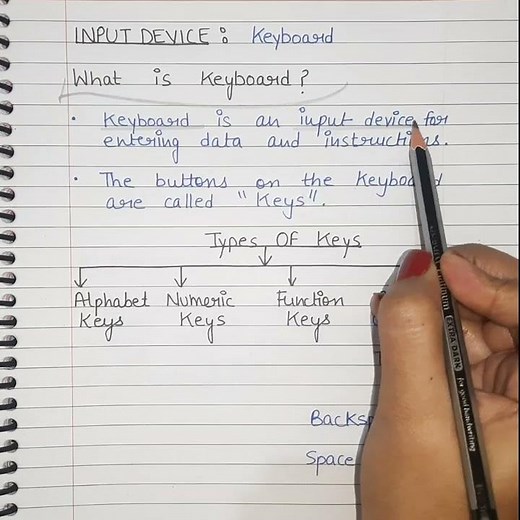 INPUT DEVICE : Keyboard
What is Keyboard?
• Keyboard is an input device for
entering data and instructions.
• The buttons on the Keyboard
are called "Keys".
Types OF Keys
Alphabet Keys
Numeric Keys
Function Keys
Backsp
Space
EXTRA DARK
for good handwriting